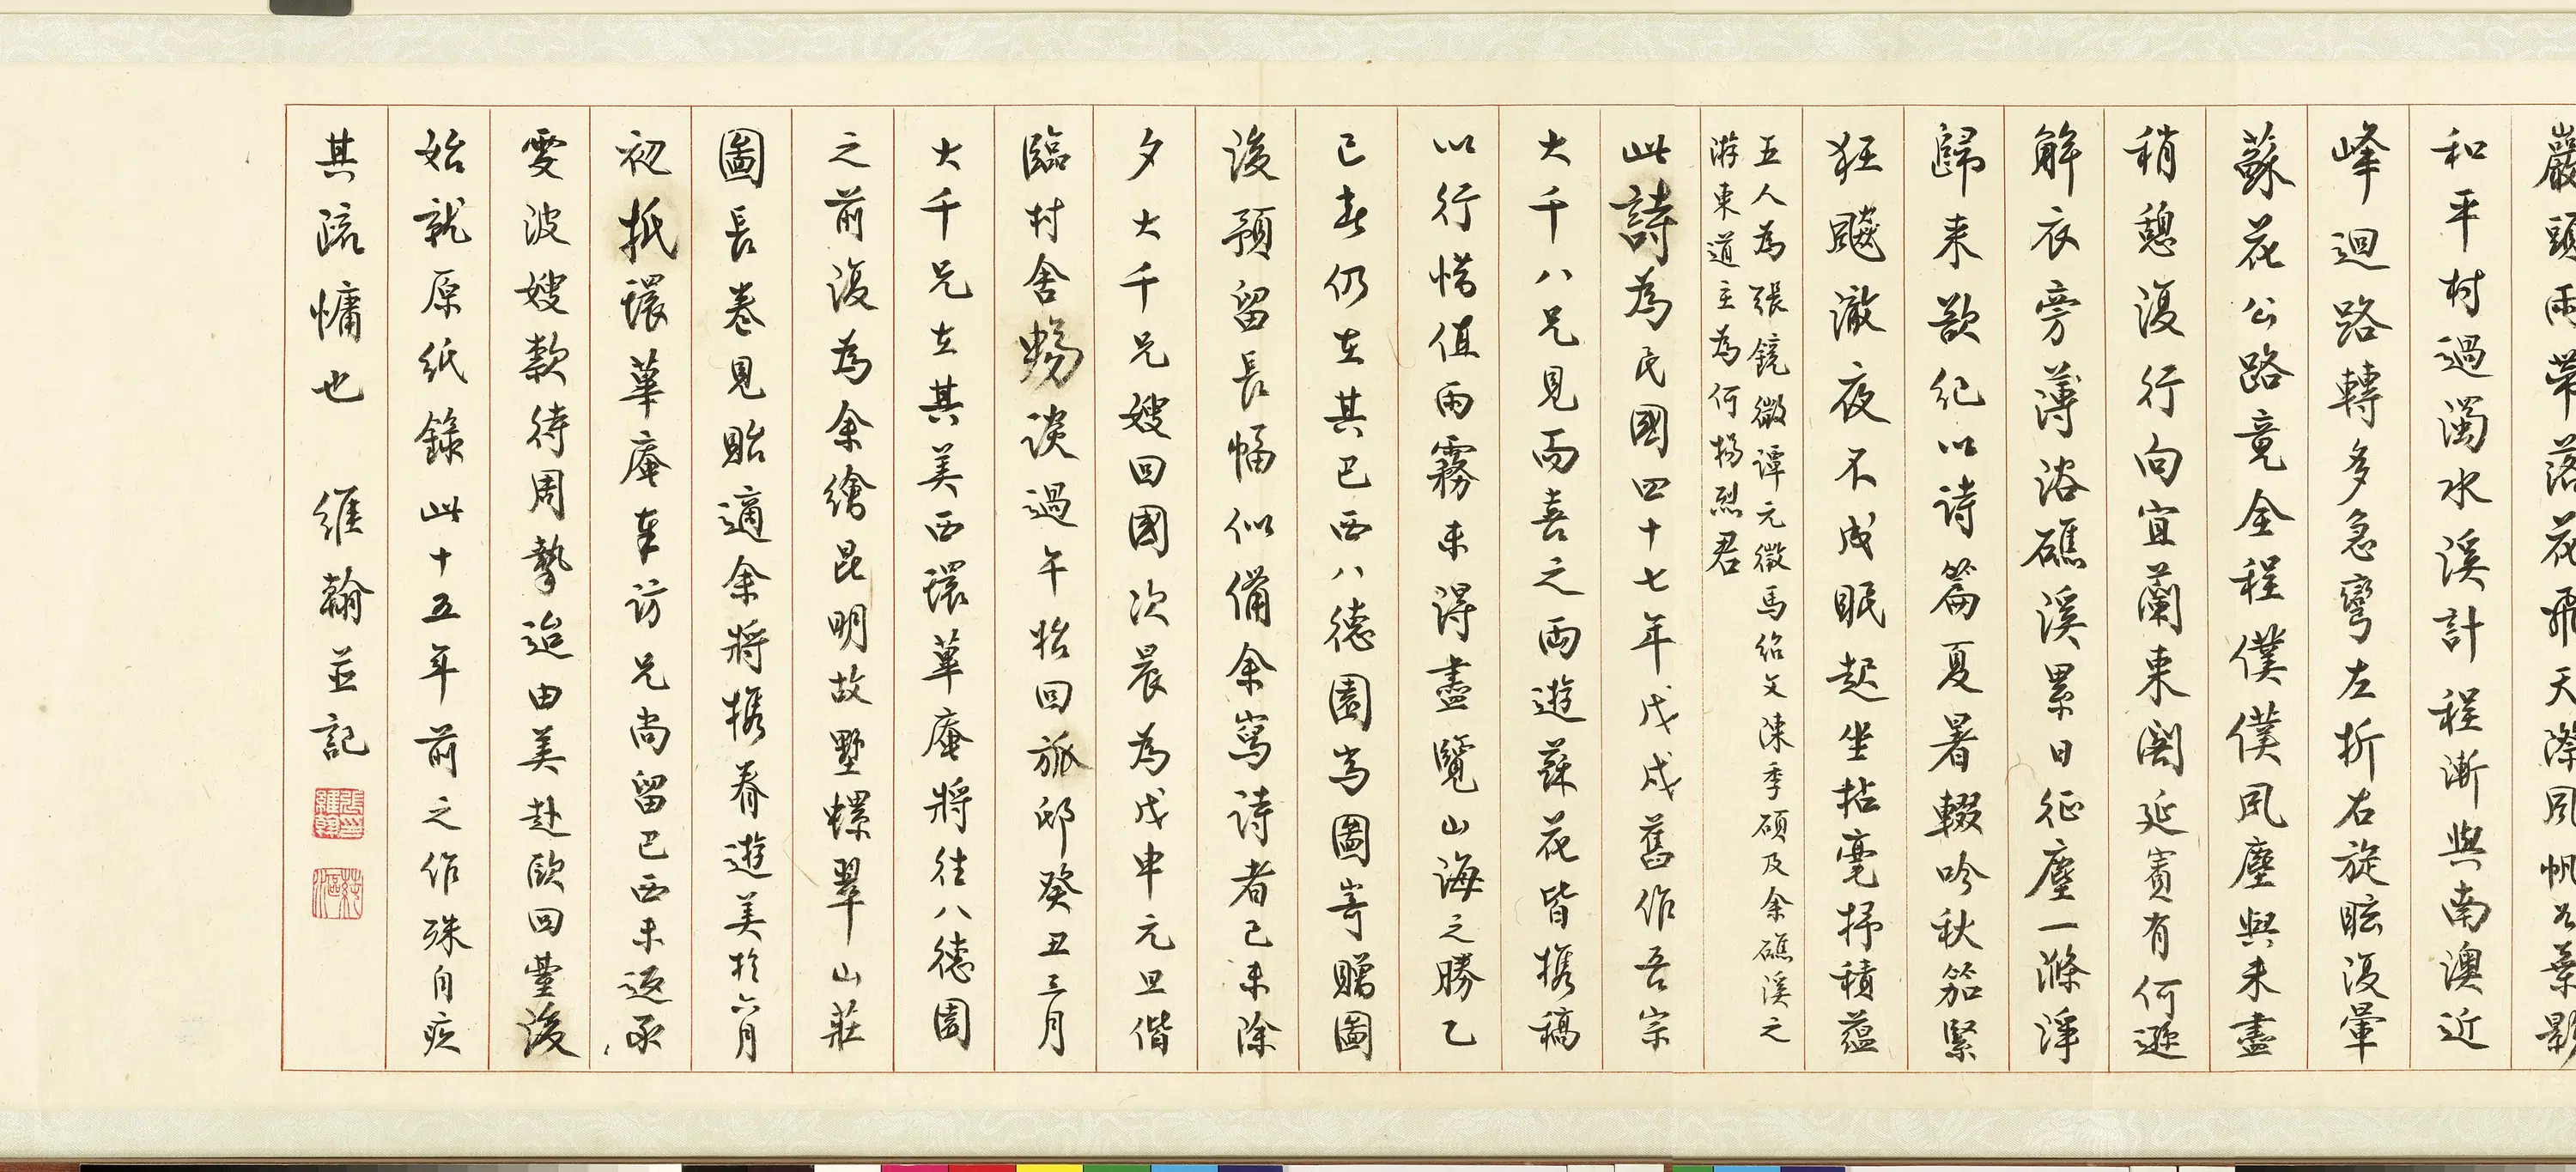 巖頭雨帶落花飛天際風帆公葉影
和平村過濁水溪計程漸與南澳近
峰迴路轉多急彎左折右旋眩復暈
蘇花公路竟全程僕僕風塵與未盡
稍憩復行向宜蘭東閣延賓有何遜
解衣旁薄浴礁溪累日征塵一滌淨
歸來欲紀以詩篇夏暑輟吟秋笳緊
狂飈澈夜不成眠起坐拈毫抒積蘊
五人為張鏡微譚元徵馬紹文陳季碩及余礁溪之
游東道主為何揚烈君
此詩為民國四十七年戊戌舊作吾宗
大千八兄見而喜之兩遊蘇花皆攜稿
以行惜值雨霧未得盡覽山海之勝乙
巳春仍在其巴西八德園為圖寄贈圖
後預留長幅似備余寫詩者己未除
夕大千兄嫂回國次晨為戊申元旦偕
臨村舍暢談過午始回旅邸癸丑三月
大千兄在其美西環蓽庵將往八德園
之前復為余繪昆明故墅螺翠山莊
圖長卷見貽適余將攜眷遊美於六月
初抵環蓽庵奉訪兄尚留巴西未返承
雯波嫂款待周摯迨由美赴歐回臺後
始就原紙錄此十五年前之作殊自疚
其疏慵也 維翰並記
張維翰印
蒓漚